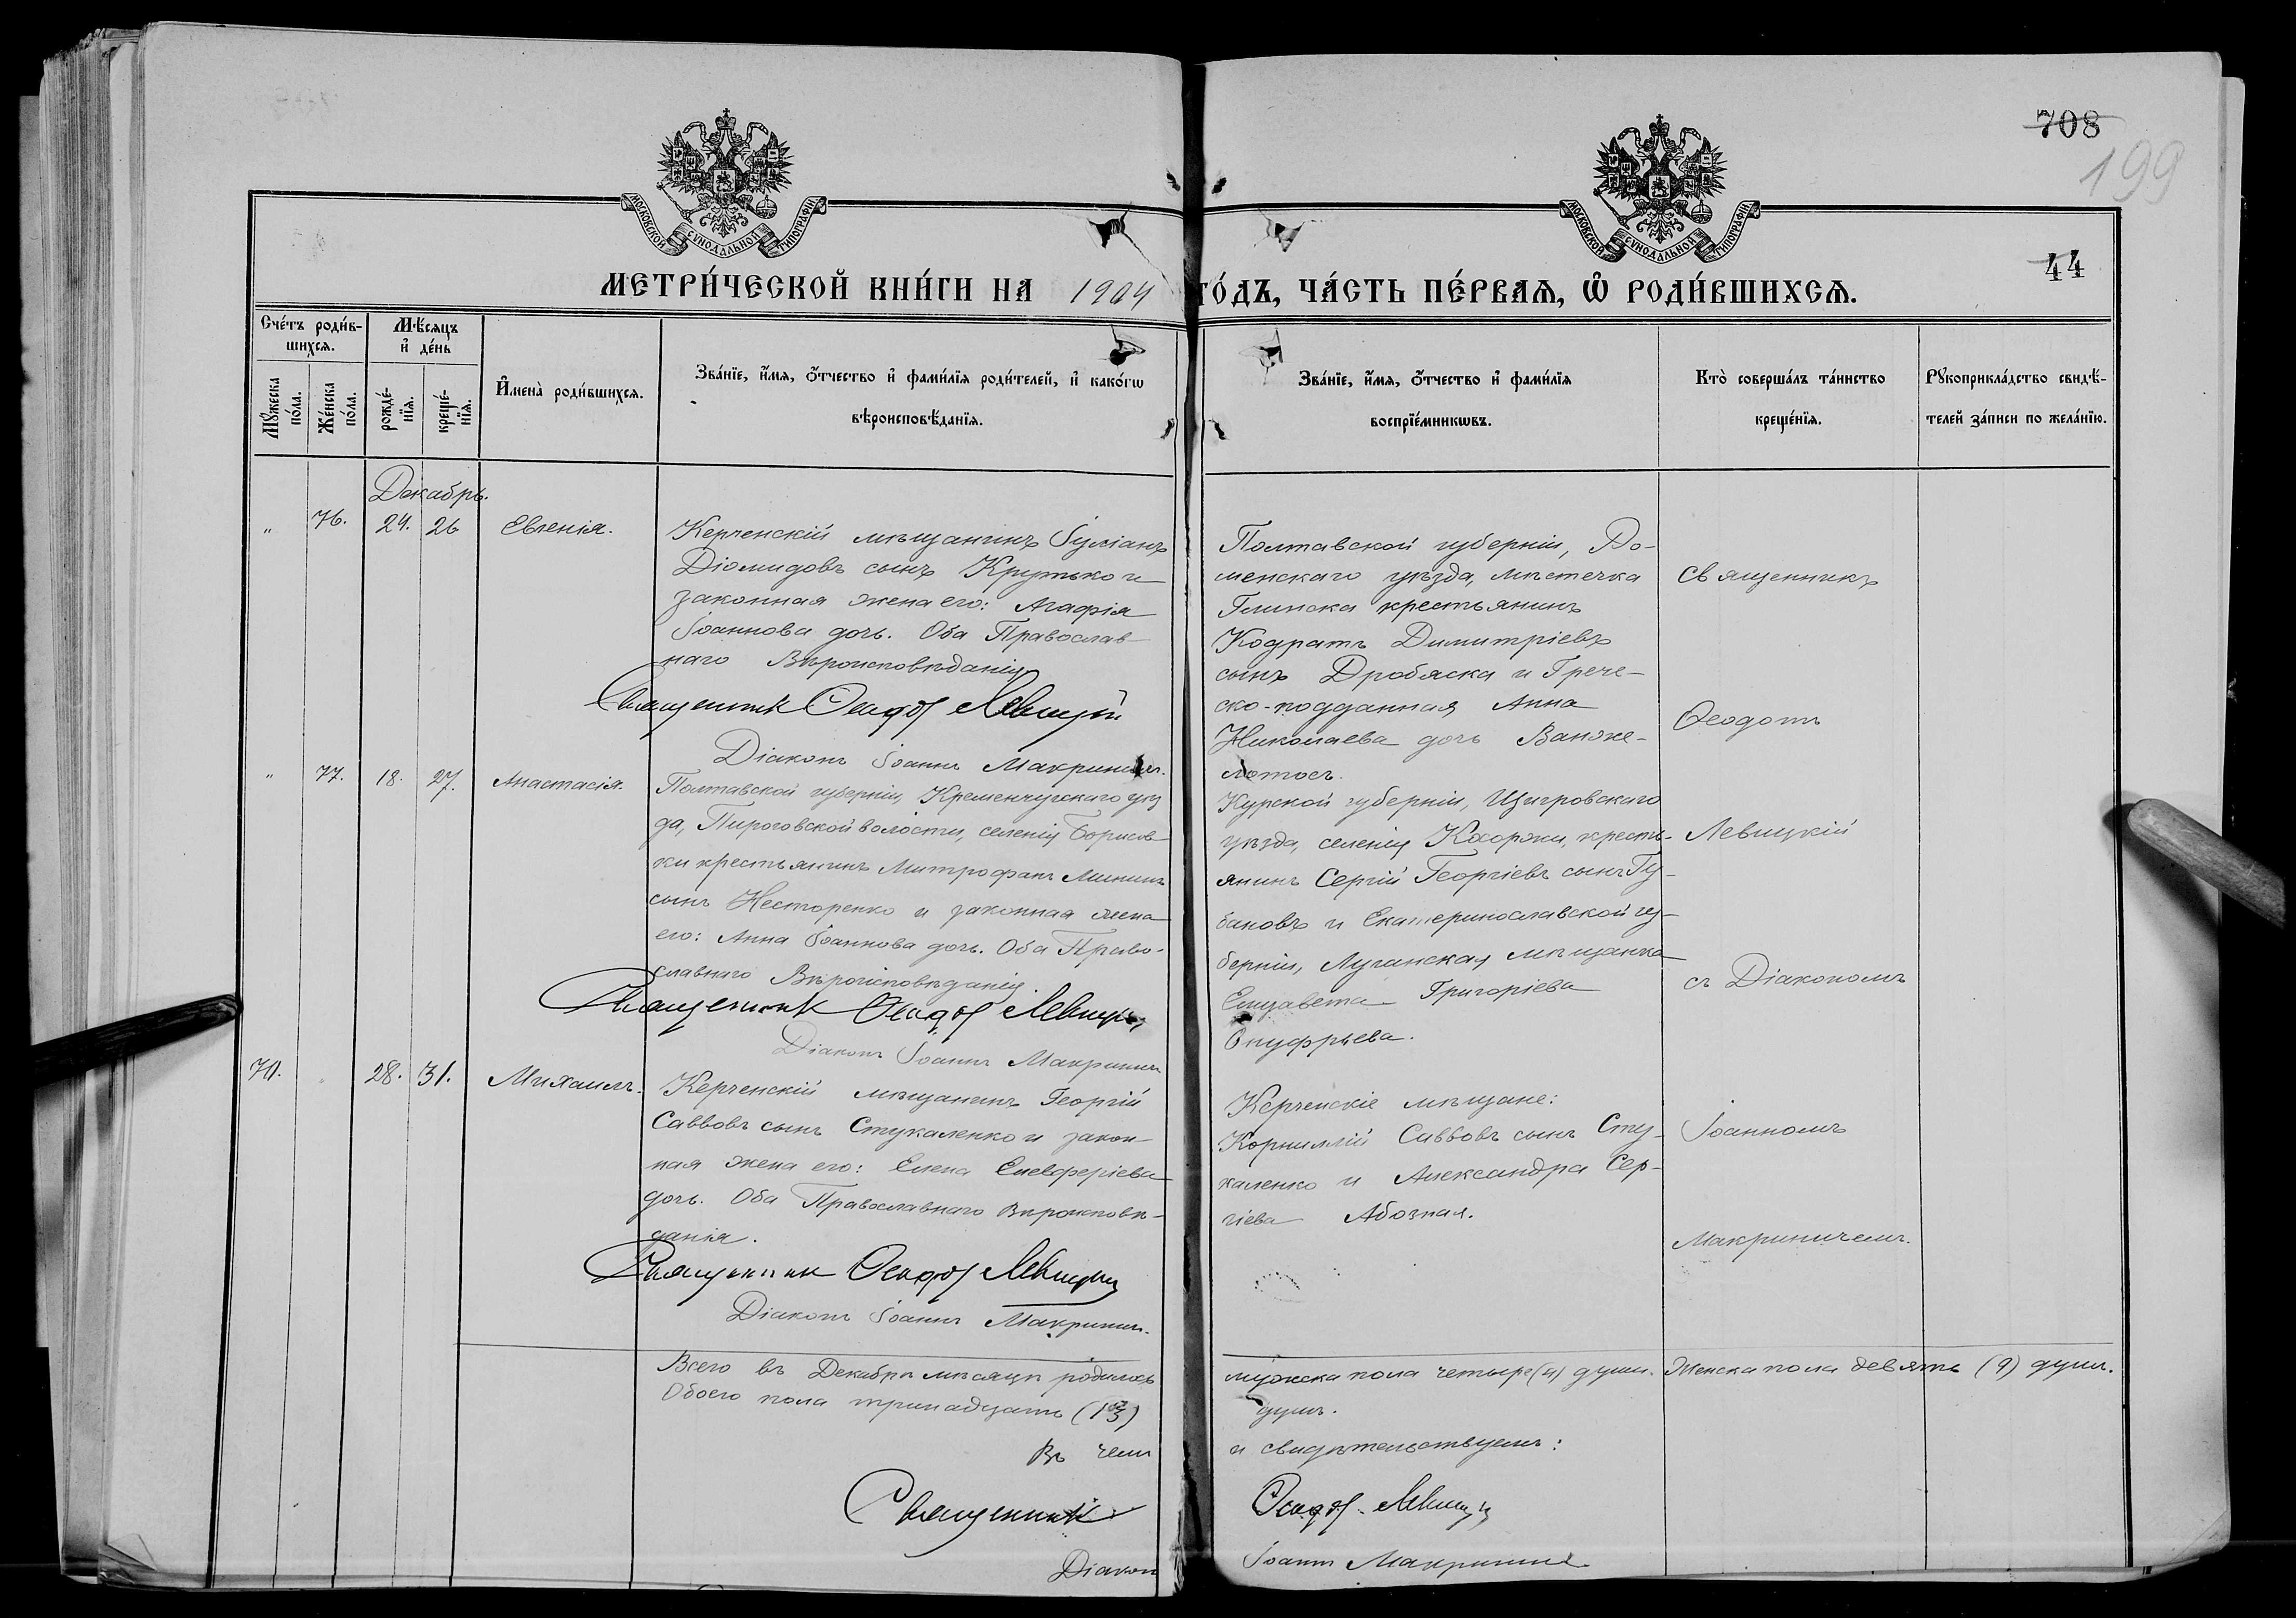 708
199
МОСКОВСКОЙ СѴНОДАЛЬНОЙ ТИПОГРАФІИ
МОСКОВСКОЙ СѴНОДАЛЬНОЙ ТИПОГРАФІИ
44
МЕТРИ́ЧЕСКОЙ КНИ́ГИ НА 1904 ГО́ДЪ, ЧА́СТЬ ПЕ́РВАЯ, Ѡ҆ РОДИ́ВШИХСЯ.
Сче́тъ роди́в-
шихся.
Мꙋ́жеска по́ла.
Же́нска по́ла.
Мѣ́сяцъ
и҆ де́нь
рожде́-
нїя.
креще́-
нїя.
И҆мена̀ роди́вшихся.
Зва́нїе, и҆́мя, ѻ҆́тчество и҆ фами́лїя роди́телей, и҆ како́гѡ
вѣроисповѣ́данїя.
Зва́нїе, и҆́мя, ѻ҆́тчество и҆ фами́лїя
воспрїе́мникѡвъ.
Кто̀ соверша́лъ та́инство
креще́нїя.
Рꙋкоприкла́дство свидѣ́-
телей за́писи по жела́нїю.
Декабрь.
" 76. 24. 26 Евгенія.
Керченскій мѣщанинъ Іуліанъ
Діомидовъ сынъ Крутько и
законная жена его: Агафія
Іоаннова дочь. Оба Православ
наго Вѣроисповѣданія
Священникъ Ѳеодотъ Левицкій
Діаконъ Іоаннъ Макриничъ.
Полтавской губерніи, Ро-
менскаго уѣзда, мѣстечка
Глинска крестьянинъ
Кодратъ Димитріевъ
сынъ Дробяска и Грече-
ско-подданная Анна
Николаева дочь Ванже-
лотосъ.
" 77. 18. 27. Анастасія.
Полтавской губерніи, Кременчугскаго уѣз
да, Пироговской волости, селенія Борисов-
ки крестьянинъ Митрофанъ Мининъ
сынъ Несторенко и законная жена
его: Анна Іоаннова дочь. Оба Право-
славнаго Вѣроисповѣданія.
Священникъ Ѳеодотъ Левицкій
Діаконъ Іоаннъ Макриничъ
Курской губерніи, Щигровскаго
уѣзда, селенія Косоржи, кресть-
янинъ Сергій Георгіевъ сынъ Гу-
бановъ и Екатеринославской гу-
берніи, Луганская мѣщанка
Елизавета Григоріева
Онуфрьева.
70. " 28. 31. Михаилъ.
Керченскій мѣщанинъ Георгій
Саввовъ сынъ Стукаленко и закон-
ная жена его: Елена Елевферіева
дочь. Оба Православнаго Вѣроисповѣ-
данія.
Священникъ Ѳеодотъ Левицкій
Діаконъ Іоаннъ Макриничъ.
Керченскіе мѣщане:
Корнилій Саввовъ сынъ Сту-
каленко и Александра Сер-
гіева Абозная.
Священникъ
Ѳеодотъ
Левицкій
съ Діакономъ
Іоанномъ
Макриничемъ.
Всего въ Декабрѣ мѣсяцѣ родилось мужска пола четыре (4) души. Женска пола девять (9) душъ.
Обоего пола тринадцать (13) душъ.
Въ чемъ и свидѣтельствуемъ:
Священникъ Ѳеодотъ Левицкій
Діаконъ Іоаннъ Макриничъ